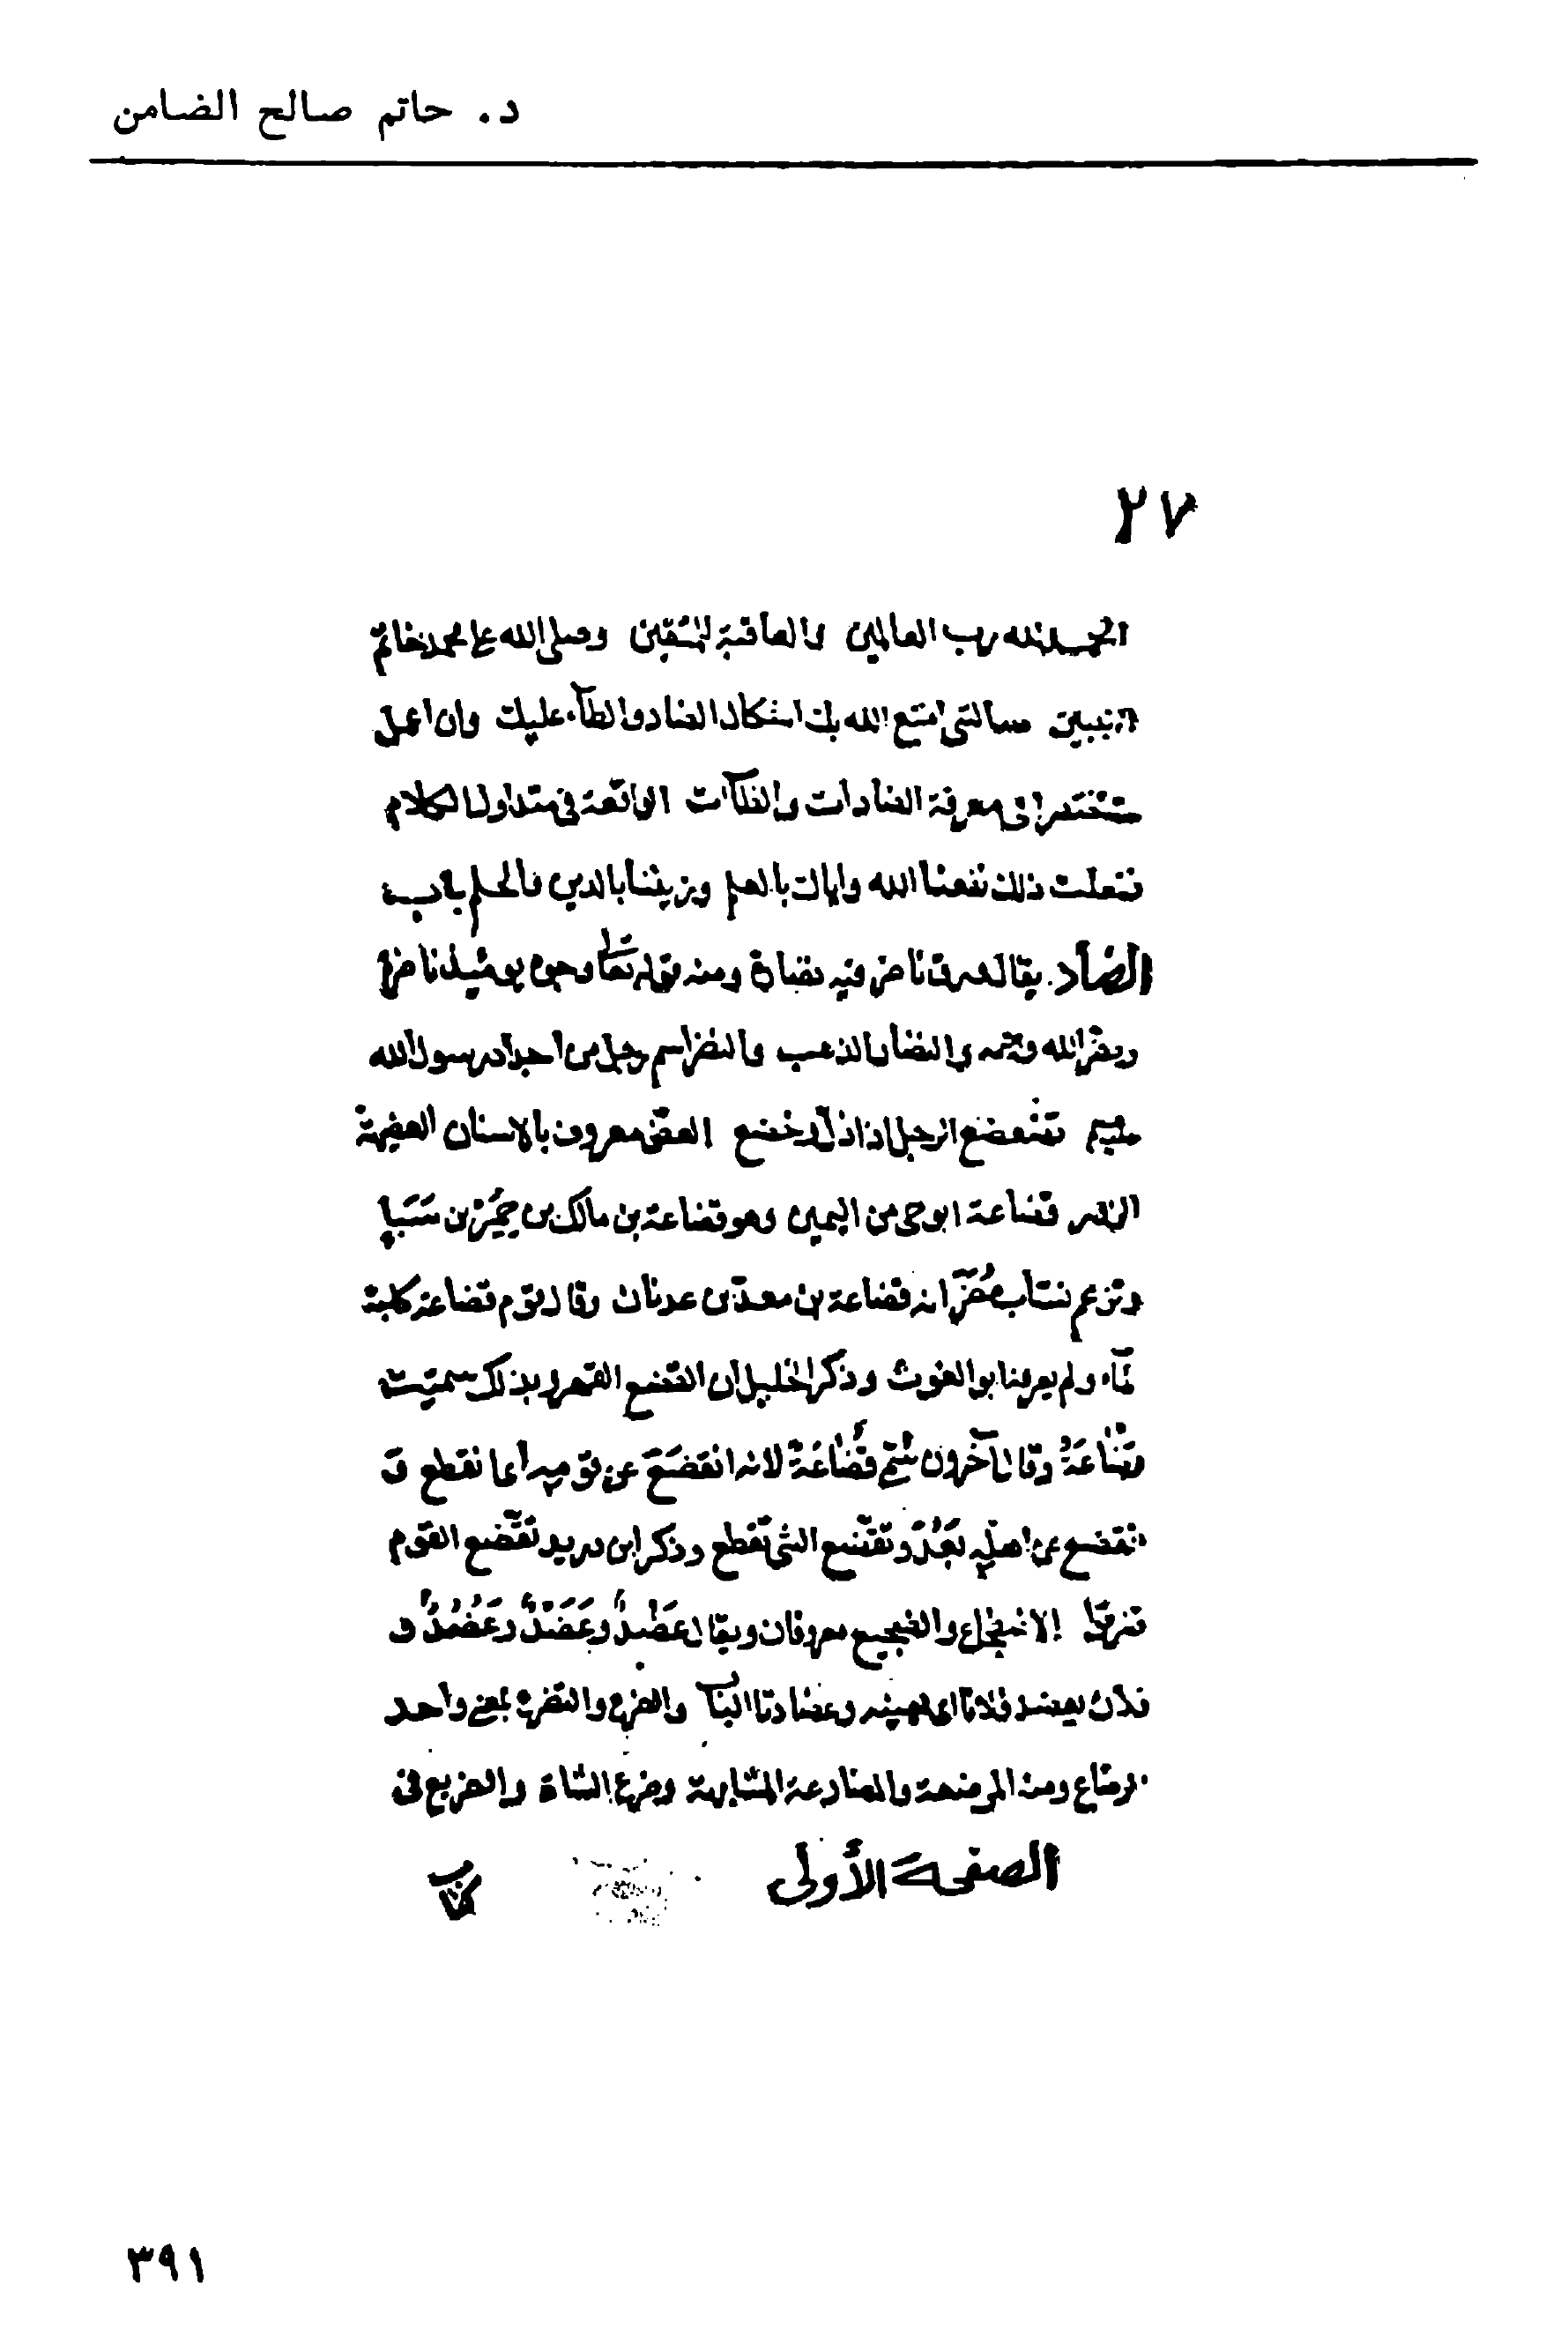 د. حاتم صالح الضامن
٢٧
الحمد لله رب العالمين والعاقبة للمتقين وصلى الله على محمد خاتم
النبيين سالتى امتع الله بك اشكال الضاد والظآء عليك وان اعمل
مختصرا فى معرفة الضادات والظآات الواقعة فى متداول الكلام
ففعلت ذلك نفعنا الله واياك بالعلم وزيننا بالدين والحلم باب
الضاد يقال لعرق ناض فيه نضارة ومنه قوله تعا وجوه يومئيذ ناضرة
ونضر الله وجهه والنضار الذهب والنضر اسم رجل من اجداد رسول الله
تضعضع الرجل اذا ذل وخضع العض معروف بالاسنان
قضاعة ابو حى من اليمن وهو قضاعة بن مالك بن حِمْيَر بن سَبَإ
وتزعم نسّاب مُضَر انه قضاعة بن معدّ بن عدنان وقال قوم قضاعة كلبة
لمآء ولم يعرفنا بو الغوث وذكر الخليل ان القضع القهر وبذلك سميت
قضاعَةُ وقال آخرون سُمّى قُضَاعَةُ لانه انقَضَعَ عن قومه اى انقطع و
انقضع عن اهله بَعُدَ وتَقَضّع الشى تقطع وذكر ابن دريد تَقَضّع القوم
تفرقوا الاضطجاع والضجيع معروفان ويقال عَضْدٌ وعَضَدٌ وعَضُدٌ و
فلان يعضد فلانا اى يعينه وعضادتا الباب والضرع والتضرع بمعنى واحد
الرضاع ومنه المرضعة والمضارعة المشابهة وضرع الشاة والضريع فى
الصفحة الأولى
كتاب
٣٩١